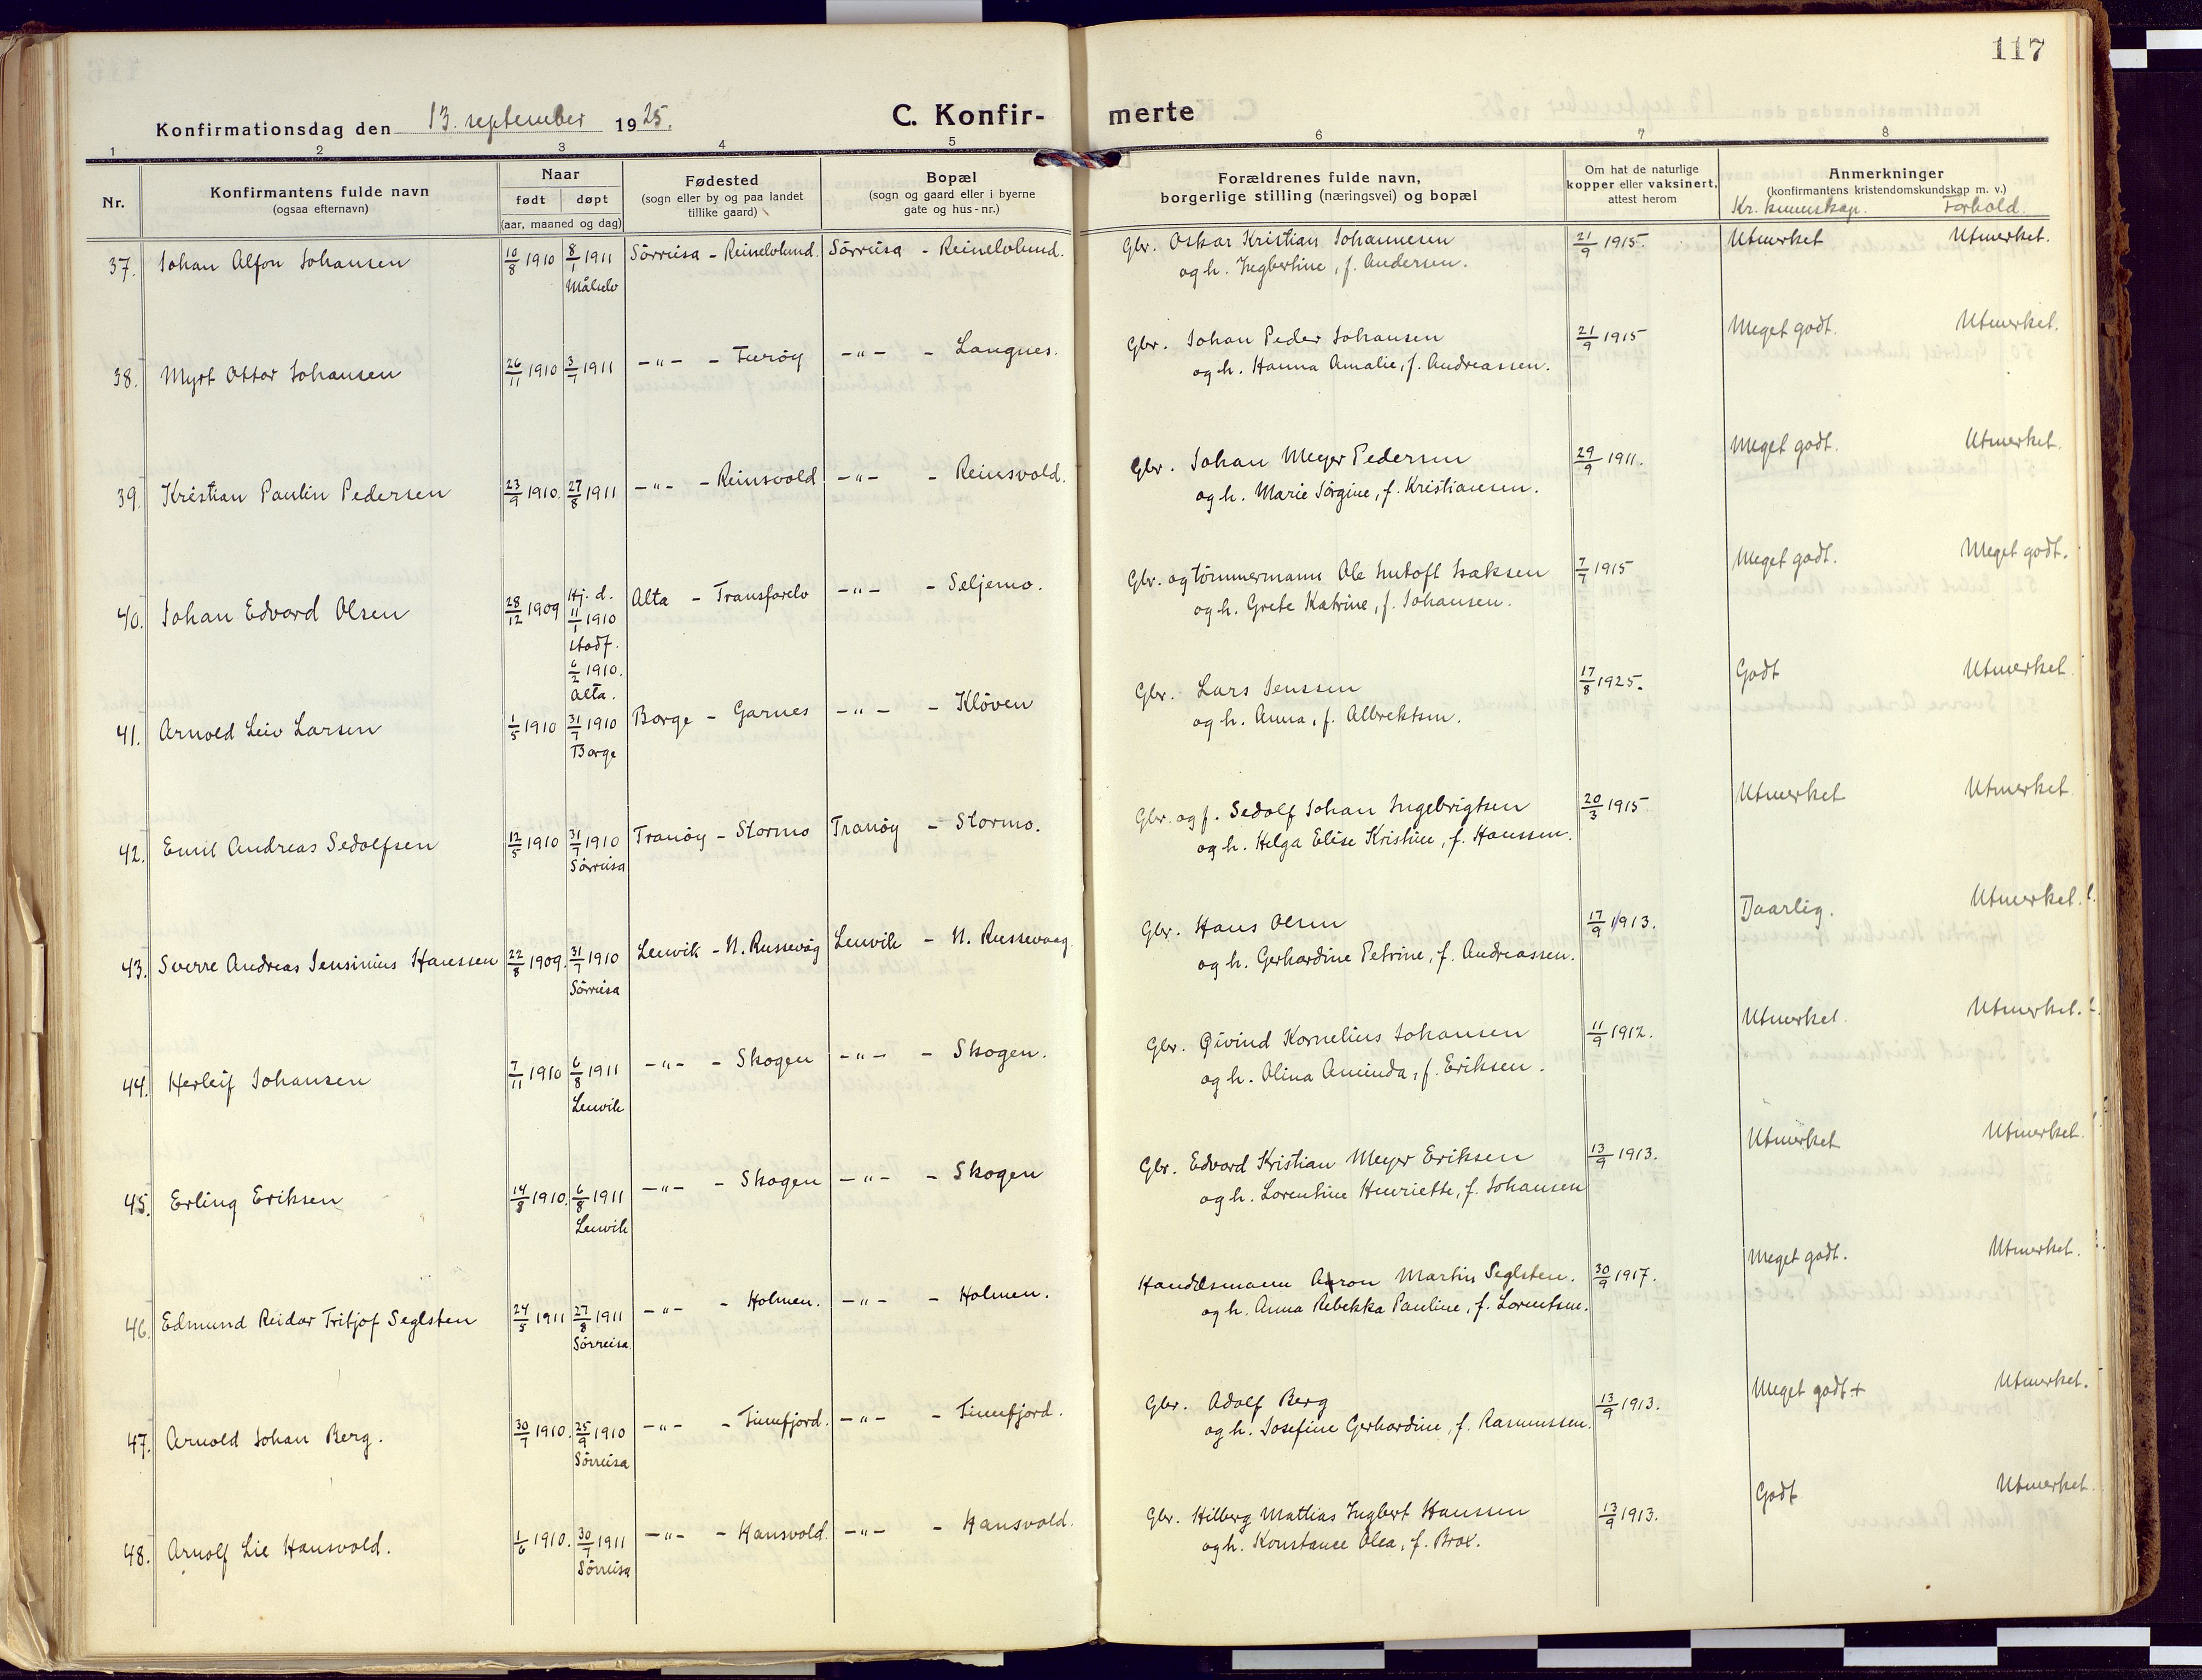 117
Konfirmationsdag den 13. september 1925.
C. Konfirmerte
1 2 3 4 5 6 7 8
Nr.
Konfirmantens fulde navn
(ogsaa efternavn)
Naar
født døpt
(aar, maaned og dag)
Fødested
(sogn eller by og paa landet
tillike gaard)
Bopæl
(sogn og gaard eller i byerne
gate og hus-nr.)
Forældrenes fulde navn,
borgerlige stilling (næringsvei) og bopæl
Om hat de naturlige
kopper eller vaksinert,
attest herom
Anmerkninger
(konfirmantens kristendomskundskap m. v.)
Kr. kunnskap. Forhold.
37. Johan Alfon Johansen 10/8 1910 8/1 1911 Sörreisa - Reinelvlund. Sörreisa - Reinelvlund. Gbr. Oskar Kristian Johannesen 21/9 1915. Utmerket Utmerket.
Målselv og h. Ingbertine, f. Andersen.
38. Myrt Ottar Johansen 26/11 1910 3/7 1911 -"- - Furöy -"- - Langnes. Gbr. Johan Peder Johansen 21/9 1915 Meget godt. Utmerket.
og h. Hanna Amalie, f. Andreassen.
39. Kristian Paulin Pedersen 23/9 1910. 27/8 1911 -"- - Reinsvold -"- - Reinsvold. Gbr. Johan Meyer Pedersen 29/9 1911. Meget godt. Utmerket.
og h. Marie Jörgine, f. Kristiansen.
40. Johan Edvard Olsen 28/12 1909 Hj. d. 11/1 1910 Alta - Transfarelv -"- - Seljemo. Gbr. og tömmermann Ole Intoft Isaksen 7/7 1915 Meget godt. Meget godt.
stadf. 6/2 1910. Alta. og h. Grete Katrine, f. Johansen.
41. Arnold Leiv Larsen 1/5 1910 31/7 1910 Borge - Garnes -"- - Klöven Gbr. Lars Jenssen 17/8 1925. Godt Utmerket
Borge og h. Anna, f. Albrektsen.
42. Emil Andreas Sedolfsen 12/5 1910 31/7 1910 Tranöy - Stormo Tranöy - Stormo. Gbr. og f. Sedolf Johan Ingebrigtsen 20/3 1915 Utmerket Utmerket
Sörreisa og h. Helga Elise Kristine, f. Hanssen.
43. Sverre Andreas Jensinius Hanssen 22/8 1909. 31/7 1910 Lenvik - N. Russevåg Lenvik - N. Russevaag Gbr. Hans Olsen 17/9 1913. Daarlig. Utmerket.
Sörreisa og h. Gerhardine Petrine, f. Andreassen.
44. Herleif Johansen 7/11 1910 6/8 1911 -"- - Skogen -"- - Skogen. Gbr. Öivind Kornelius Johansen 11/9 1912. Utmerket. Utmerket.
Lenvik og h. Olina Aminda, f. Eriksen.
45. Erling Eriksen 14/8 1910. 6/8 1911 -"- - Skogen -"- - Skogen Gbr. Edvard Kristian Meyer Eriksen 13/9 1913. Utmerket Utmerket.
Lenvik og h. Lorentine Henriette, f. Johansen
46. Edmund Reidar Fritjof Seglsten 24/5 1911 27/8 1911 -"- - Holmen. -"- - Holmen. Handelsmann Aron Martin Seglsten. 30/9 1917. Meget godt. Utmerket.
Sörreisa. og h. Anna Rebekka Pauline, f. Lorentsen.
47. Arnold Johan Berg. 30/7 1910. 25/9 1910 -"- - Finnfjord. -"- - Finnfjord. Gbr. Adolf Berg 13/9 1913. Meget godt + Utmerket.
Sörreisa og h. Josefine Gerhardine, f. Rasmussen.
48. Arnolf Lie Hansvold. 1/6 1910. 30/7 1911 -"- - Hansvold. -"- - Hansvold. Gbr. Hilberg Mattias Ingbert Hanssen 13/9 1913. Godt Utmerket.
Sörreisa og h. Konstance Olea, f. Brox.